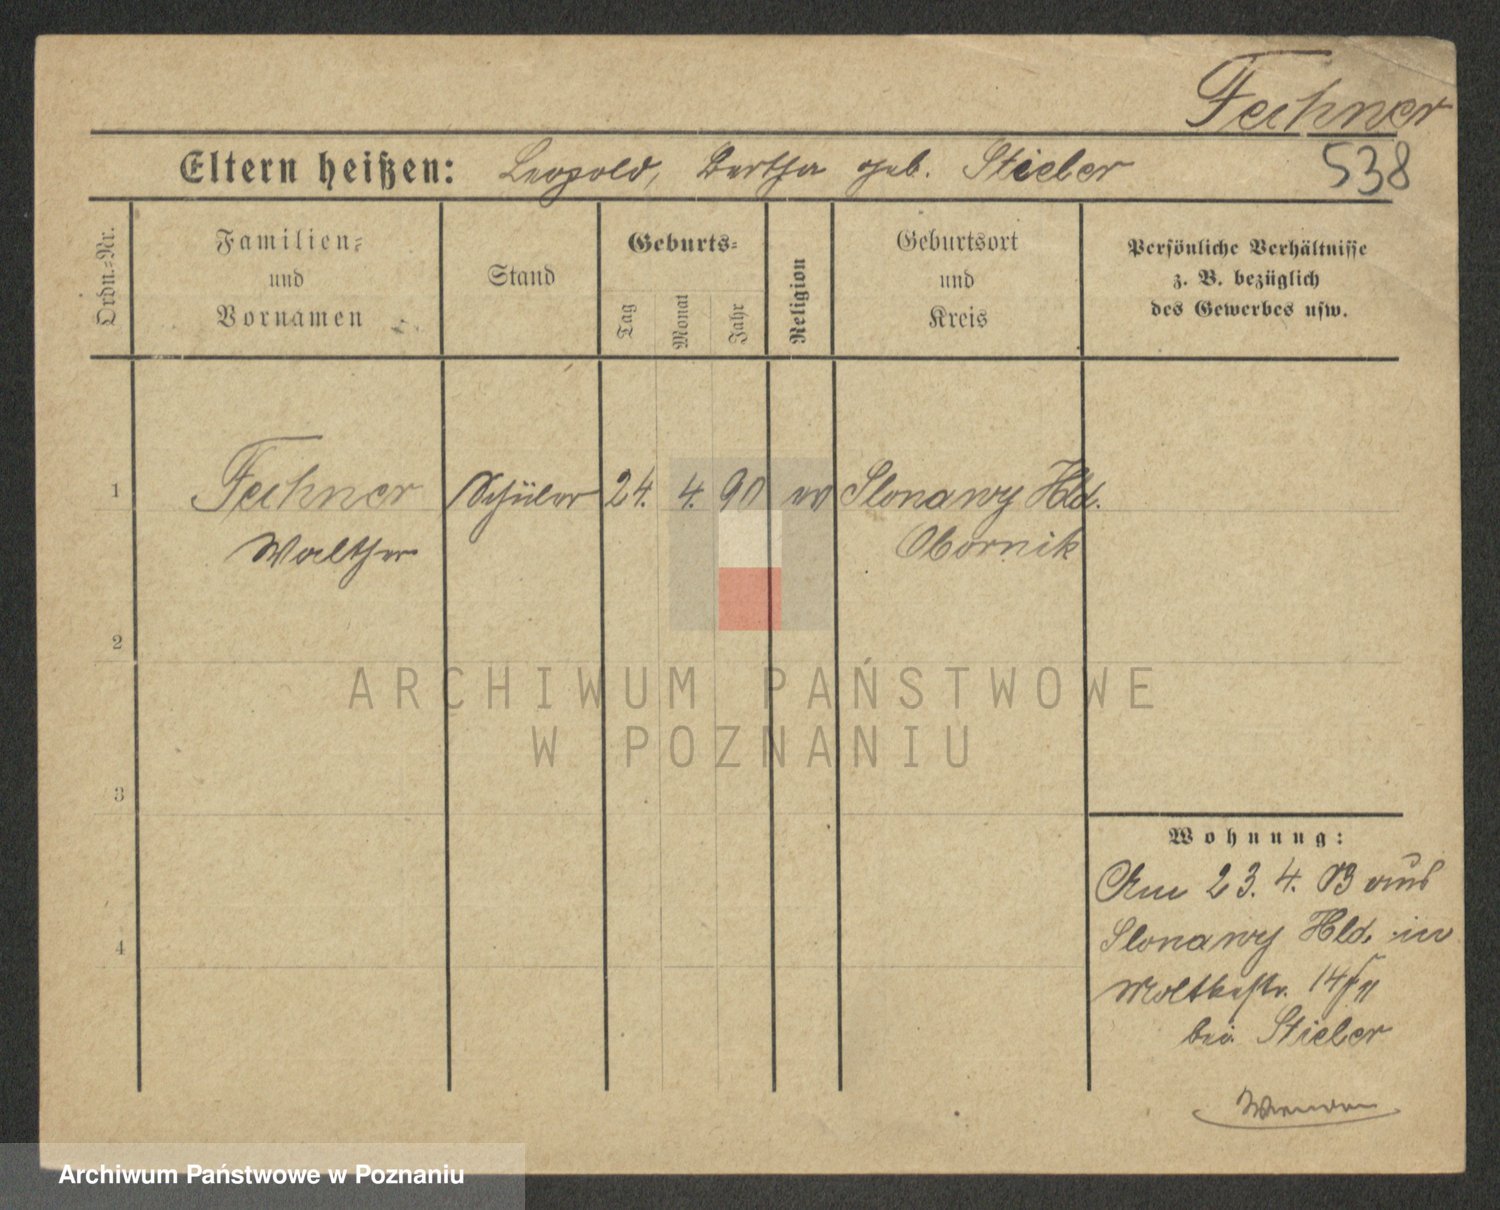 Fechner
Eltern heißen: Leopold, Bertha geb. Stieler
538
Ordn.-Nr.
Familien-
und
Vornamen
Stand
Geburts-
Tag
Monat
Jahr
Religion
Geburtsort
und
Kreis
Persönliche Verhältnisse
z. B. bezüglich
des Gewerbes usw.
1
Fechner
Walther
Schüler
24. 4. 90
ev
Slonawy Hld.
Obornik
2
3
4
Wohnung:
Am 23. 4. 03 aus
Slonawy Hld. in
Moltkestr. 14
bei Stieler
ARCHIWUM PAŃSTWOWE
W POZNANIU
Archiwum Państwowe w Poznaniu